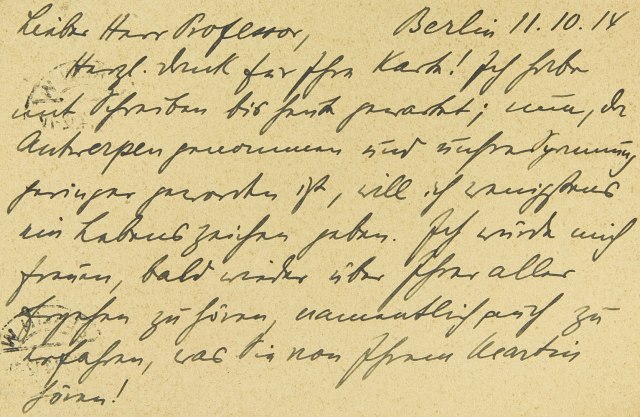 Lieber Herr Professor, Berlin 11.10.14
Herzl. Dank für Ihre Karte! Ich habe
mit Schreiben bis heute gewartet; nun, da
Antwerpen genommen und unsre
geringer geworden ist, will ich wenigstens
ein Lebenszeichen geben. Ich würde mich
freuen, bald wieder über Ihrer aller
Ergehen zu hören, namentlich auch zu
erfahren, was Sie von Ihrem Martin
hören!